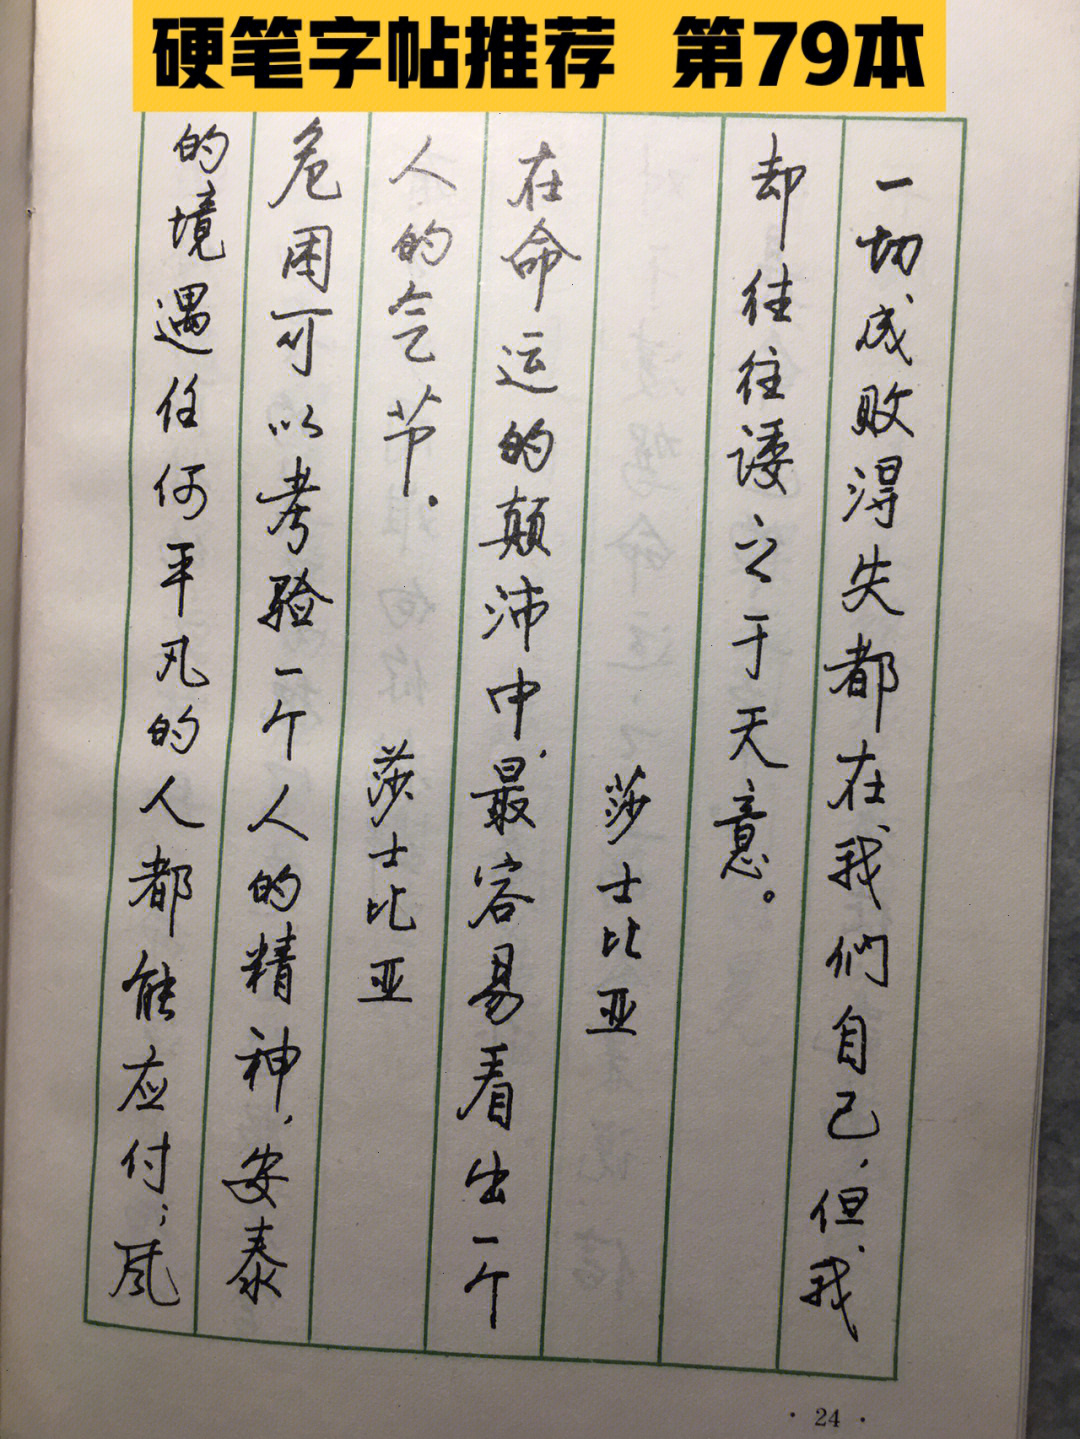 硬笔字帖推荐 第79本
一切成败得失都在我们自己,但我
却往往诿之于天意。
莎士比亚
在命运的颠沛中,最容易看出一个
人的气节.
莎士比亚
危困可以考验一个人的精神,安泰
的境遇任何平凡的人都能应付;风
·24·